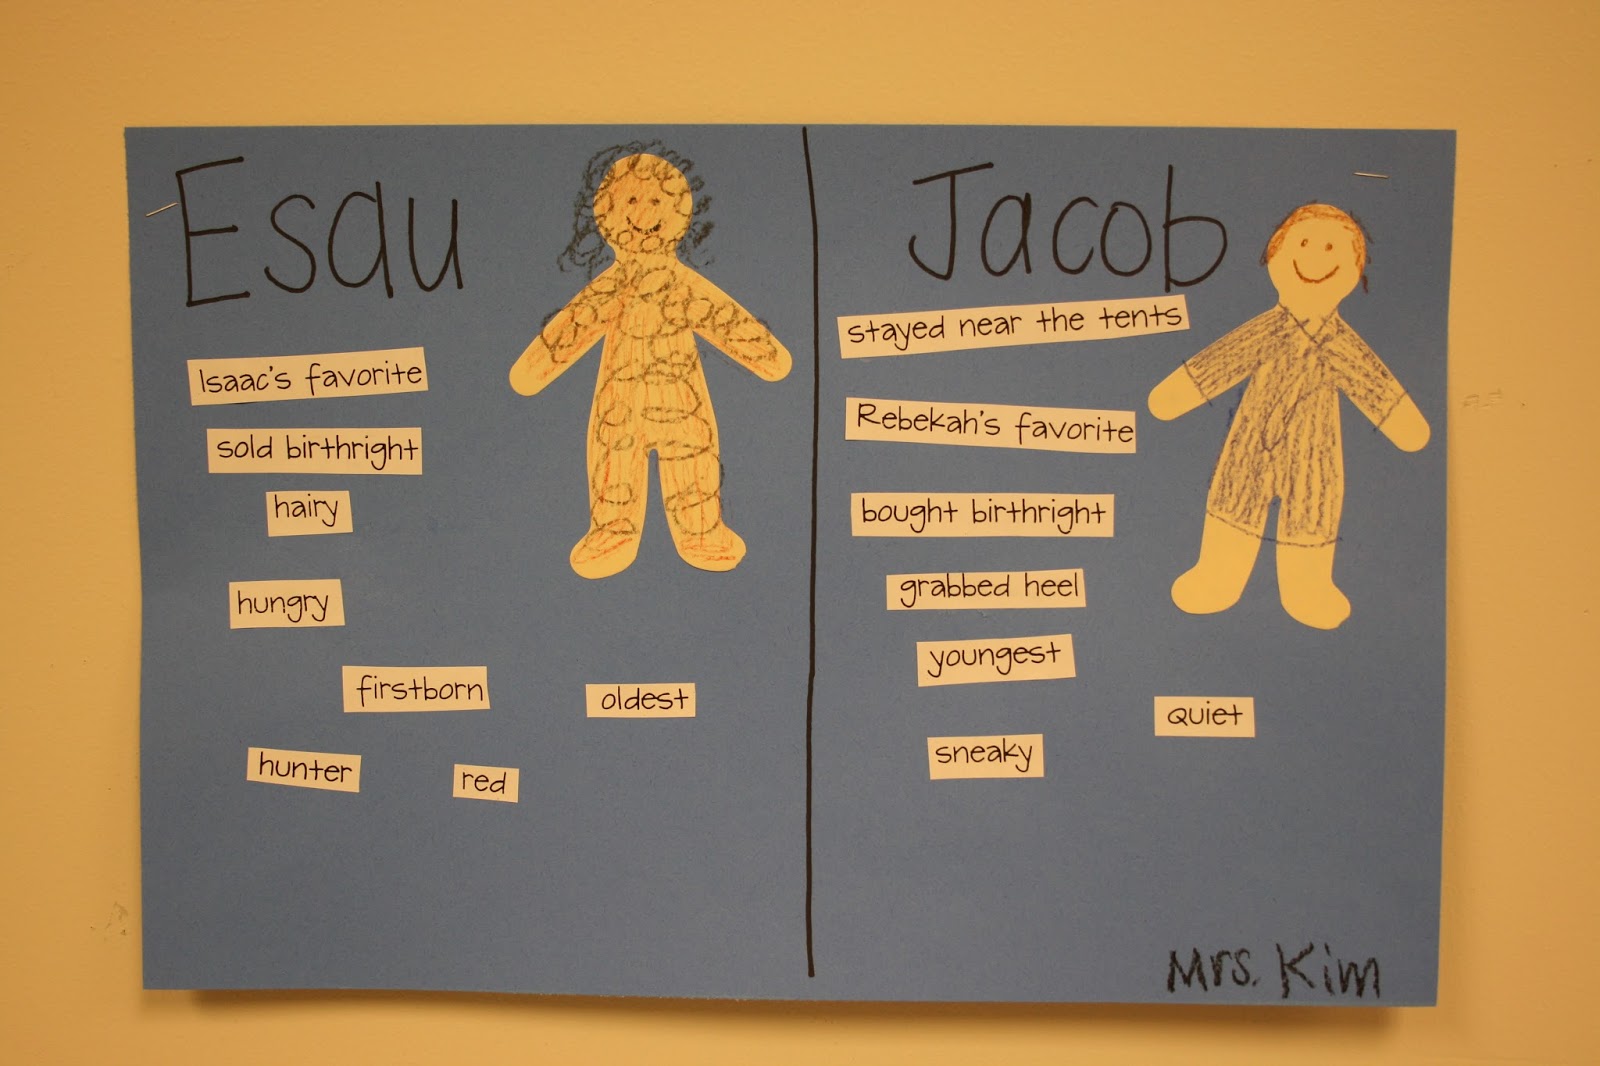 Esau
Isaac's favorite
sold birthright
hairy
hungry
firstborn
oldest
hunter
red
Jacob
stayed near the tents
Rebekah's favorite
bought birthright
grabbed heel
youngest
quiet
sneaky
Mrs. Kim